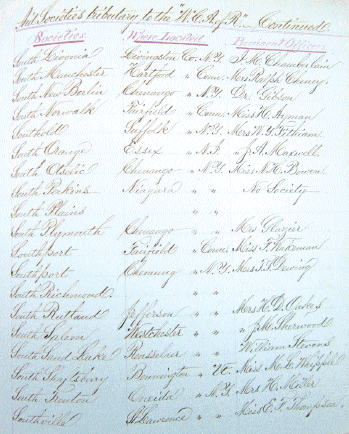 Aid Societies tributary to the "W.C.A. of R." Continued.
Societies. Where Located Prominent Officers
South Livonia Livingston Co. N.Y. J. M. Chamberlain
South Manchester Hartford " Conn. Mrs Ralph Cheney
South New Berlin Chenango " N.Y. Dr. Gibson
South Norwalk Fairfield " Conn. Miss H. Hyman
Southold Suffolk " N.Y. Mrs W. Y. Fithian
South Orange Essex " N.J. " J. A. Maxwell
South Otselic Chenango " N.Y. Miss N. H. Bowen
South Perkins Niagara " " No Society
South Plains " "
South Plymouth Chenango " " Mrs Glazier
Southport Fairfield " Conn. Miss F. Wakeman
Southport Chemung " N.Y. Mrs J. S. Dewing
South Richmond. " "
South Rutland Jefferson " " Mrs H. D.
South Salem Westchester " " " J. M. Sherwood
South Sand Lake Rensselaer " " William Stevens
South Shaftsbury Bennington " Vt. Miss M.
South Trenton Oneida " N.Y. Mrs H.
Southville St Lawrence " " Miss E. F. Thompson